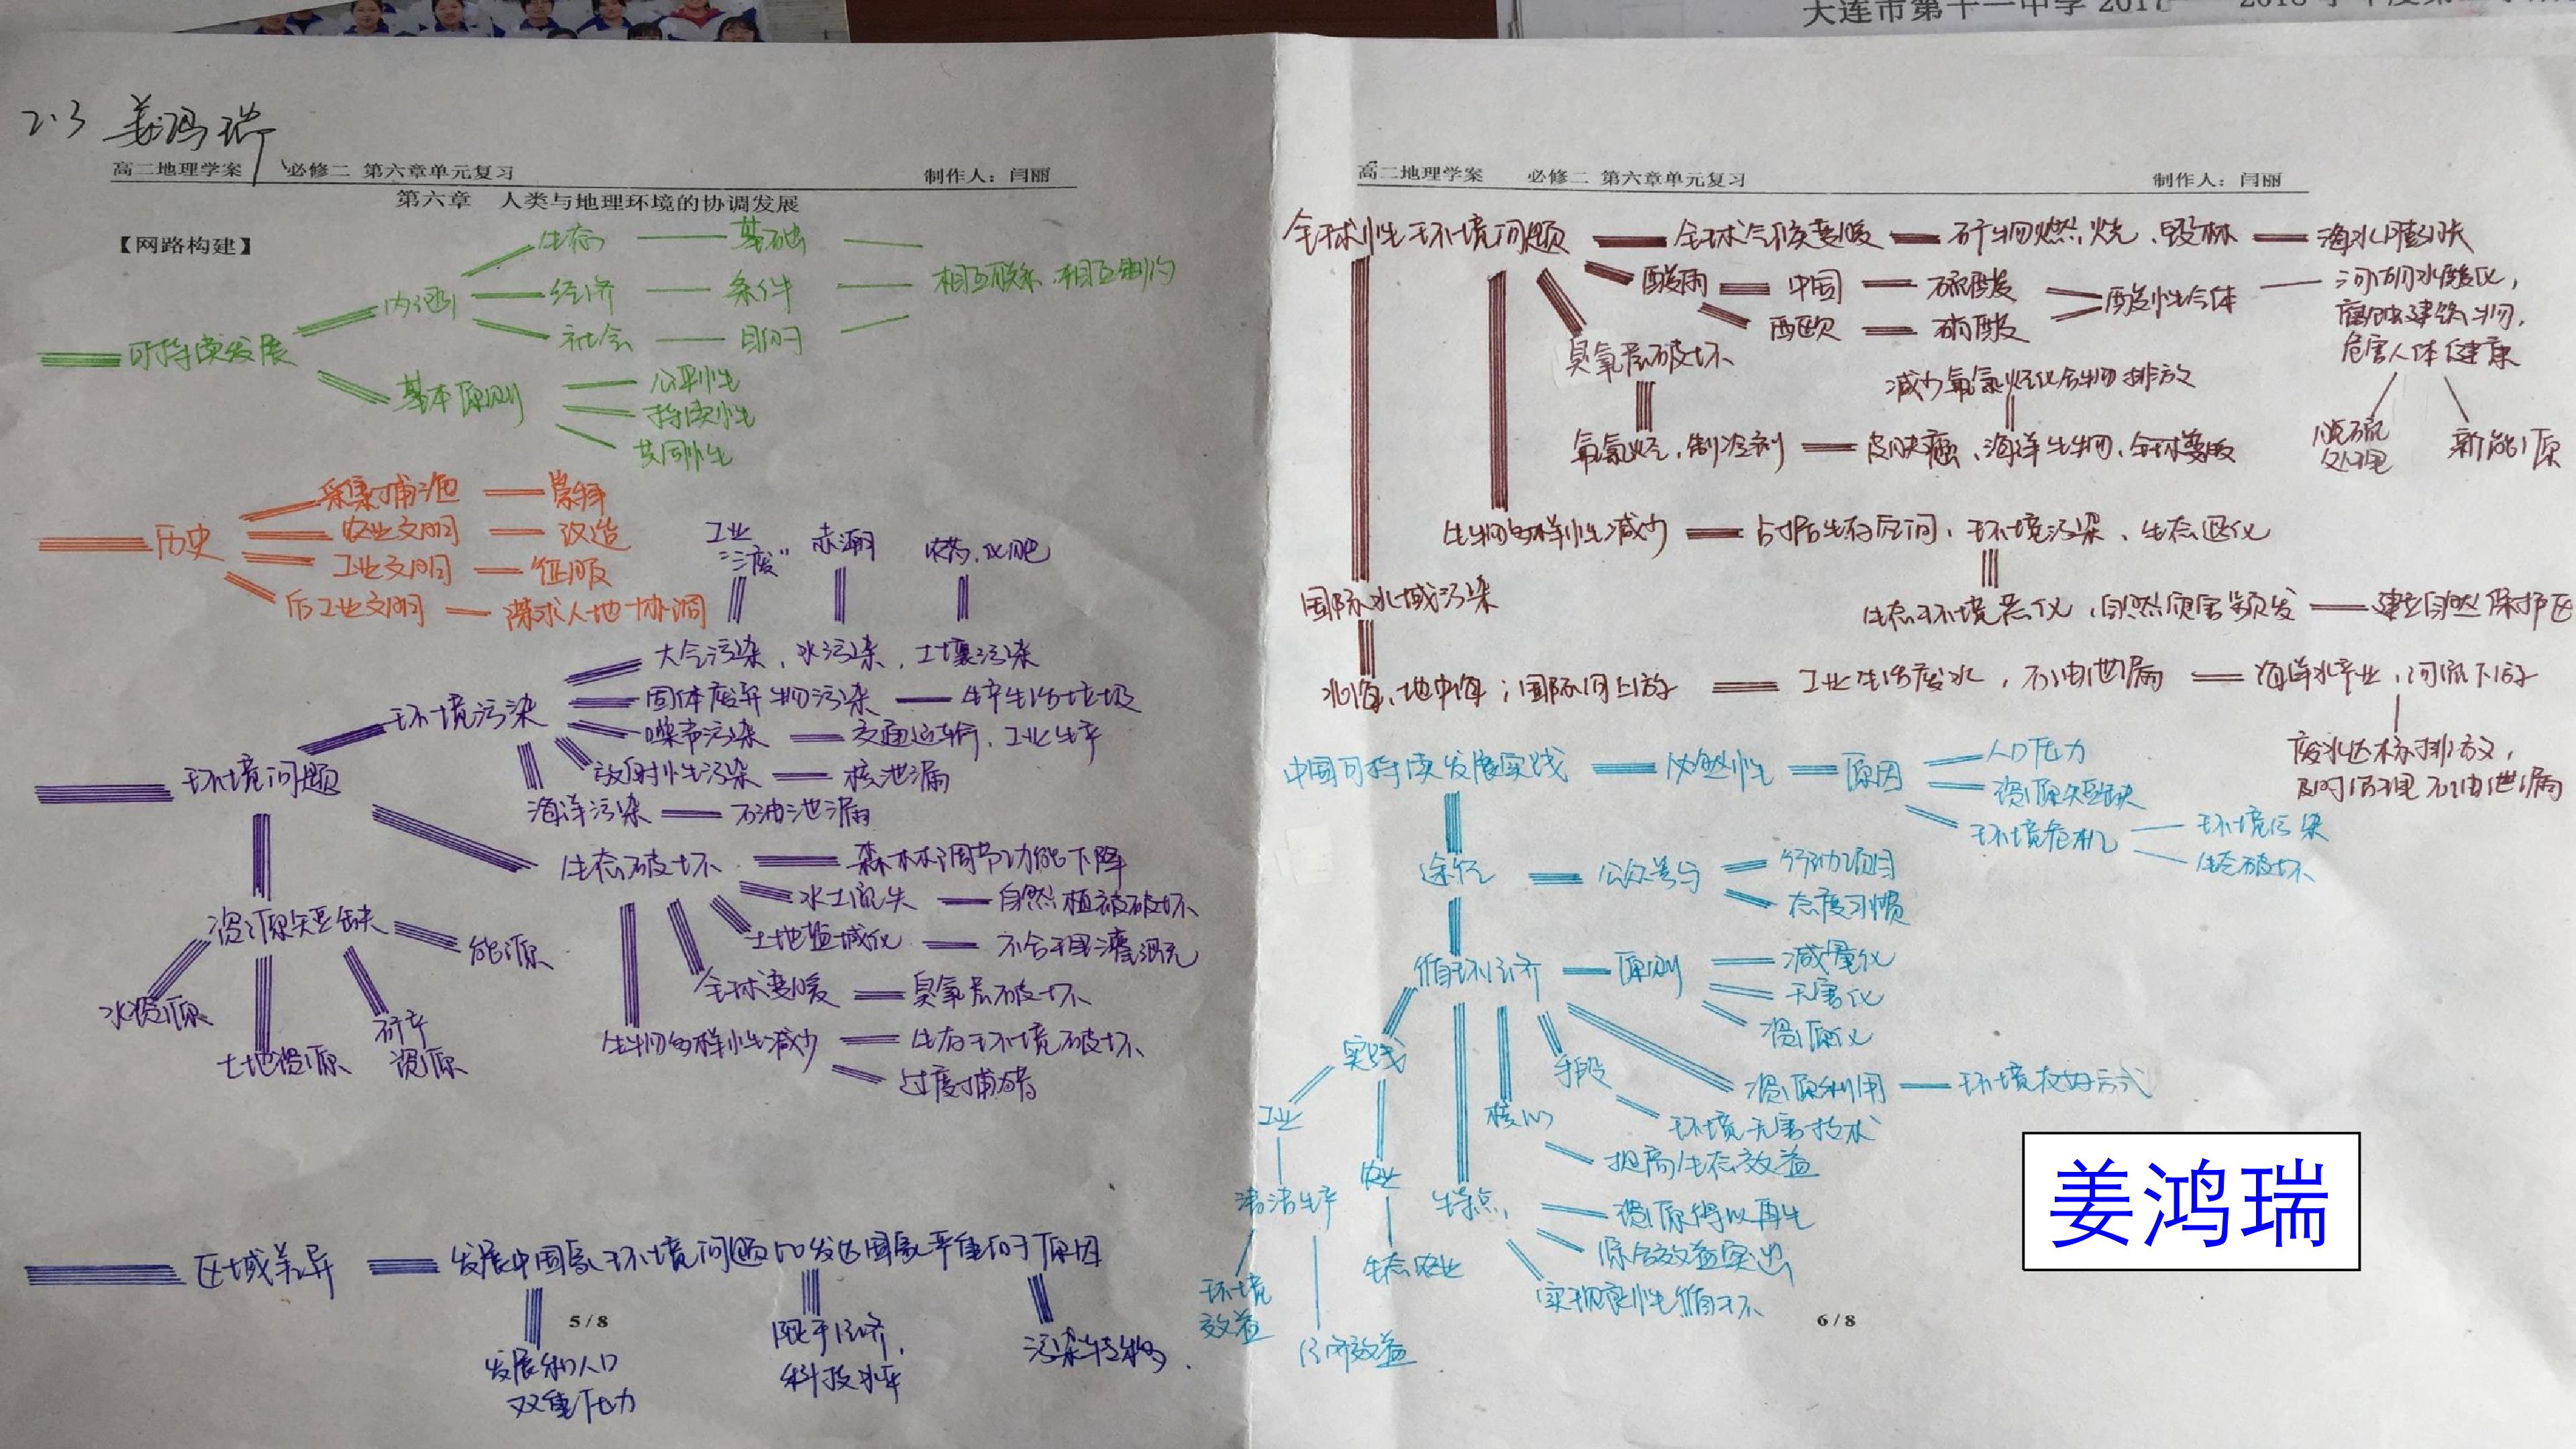 大连市第十一中学 2017
2.3 姜鸿瑞
高二地理学案 必修二 第六章单元复习 制作人：闫丽
第六章 人类与地理环境的协调发展
【网路构建】
可持续发展
内涵
生态 基础
经济 条件
社会 目的
相互联系、相互制约
基本原则
公平性
持续性
共同性
历史
采集捕猎
农业文明 改造
工业文明 征服
后工业文明 谋求人地协调
工业“三废” 赤潮 农药、化肥
环境问题
环境污染
大气污染、水污染、土壤污染
固体废弃物污染 生产生活垃圾
噪声污染 交通运输、工业生产
放射性污染 核泄漏
海洋污染 石油泄漏
生态破坏
森林调节功能下降
水土流失 自然植被破坏
土地盐碱化 不合理灌溉
全球变暖 臭氧层破坏
生物多样性减少 生态环境破坏
过度捕猎
资源短缺
能源
水资源
土地资源
矿产
资源
区域差异 发展中国家环境问题比发达国家严重的原因
发展和人口
双重压力
限于经济、
科技水平
污染转移
5/8
高二地理学案 必修二 第六章单元复习 制作人：闫丽
全球性环境问题 全球气候变暖 矿物燃烧、毁林 海水膨胀
酸雨 中国 硫酸
西欧 硝酸
酸性气体
河湖水酸化，
腐蚀建筑物，
危害人体健康
脱硫
处理
新能源
臭氧层破坏
减少氟氯烃化合物排放
氟氯烃、制冷剂 皮肤癌、海洋生物、全球变暖
生物多样性减少 占据生存空间、环境污染、生态退化
生态环境恶化、自然灾害频发 建立自然保护区
国际水域污染
北海、地中海；国际河上游 工业生活废水、石油泄漏 海洋水产业、河流下游
废水达标排放，
及时清理石油泄漏
中国可持续发展实践 必然性 原因
人口压力
资源短缺
环境危机
环境污染
生态破坏
途径 公众参与
行动项目
态度习惯
循环经济 原则
减量化
无害化
资源化
实践
工业
清洁生产
环境
效益
经济效益
农业
生态农业
手段
环境无害技术
资源利用 环境友好方式
核心
提高生态效益
特点
资源得以再生
综合效益突出
实现良性循环
6/8
姜鸿瑞